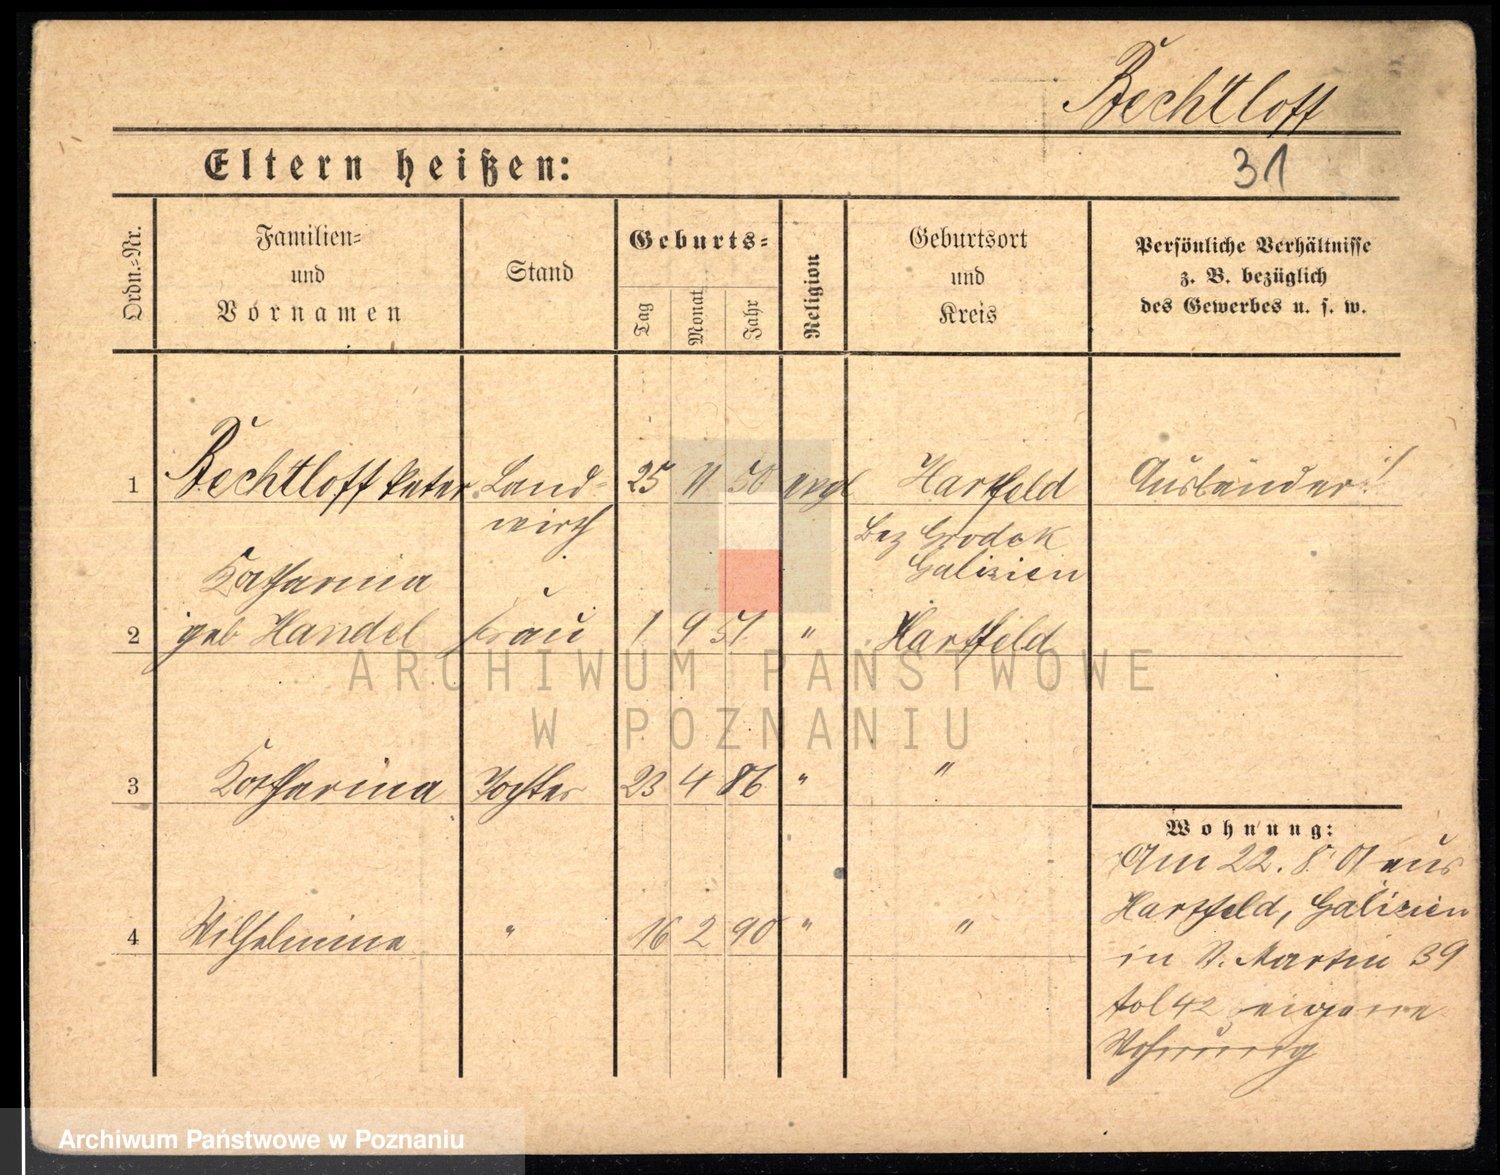 Bechtloff
Eltern heißen:
31
Ordn.-Nr.
Familien-
und
Vornamen
Stand
Geburts-
Tag
Monat
Jahr
Religion
Geburtsort
und
Kreis
Persönliche Verhältnisse
z. B. bezüglich
des Gewerbes u. s. w.
1 Bechtloff Peter Land- 25 11 50 evgl Hartfeld Ausländer!
wirth Bez Grodek
Galizien
Katharina
2 geb Handel Frau 1. 9 51. " Hartfeld
ARCHIWUM PAŃSTWOWE
W POZNANIU
3 Katharina Tochter 23 4 86 " "
Wohnung:
Am 22. 8. 01 aus
Hartfeld, Galizien
4 Wilhelmine " 16 2 90 " "
in St. Martin 39
fol 42 eigene
Wohnung
Archiwum Państwowe w Poznaniu